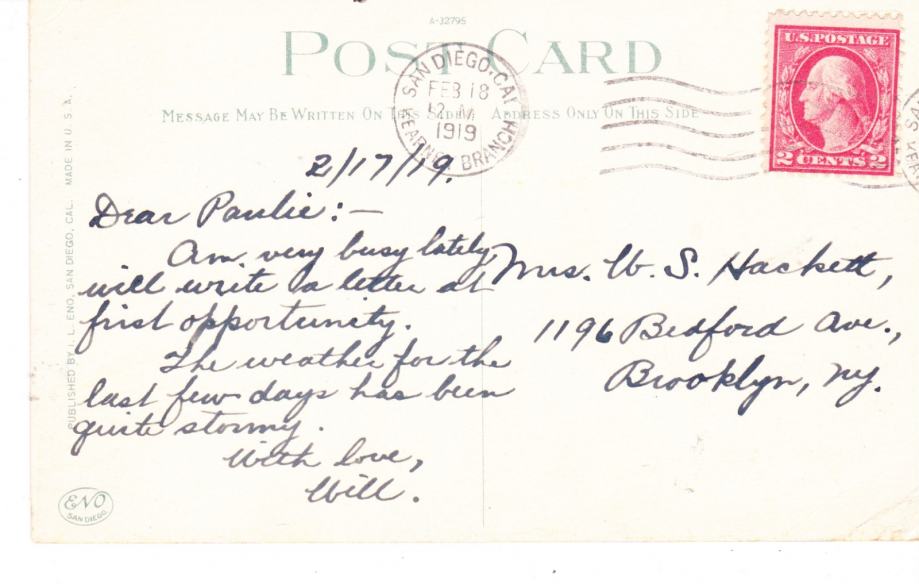 A-32795
POST CARD
MESSAGE MAY BE WRITTEN ON THIS SIDE
ADDRESS ONLY ON THIS SIDE
SAN DIEGO, CAL
FEB 18
12 M
1919
KEARNEY BRANCH
U.S. POSTAGE
2 CENTS 2
PUBLISHED BY I. L. ENO, SAN DIEGO, CAL. MADE IN U. S. A.
2/17/19.
Dear Paulie:—
Am very busy lately
will write a letter at
first opportunity.
The weather for the
last few days has been
quite stormy.
With love,
Will.
Mrs. W. S. Hackett,
1196 Bedford Ave.,
Brooklyn, NY.
ENO
SAN DIEGO